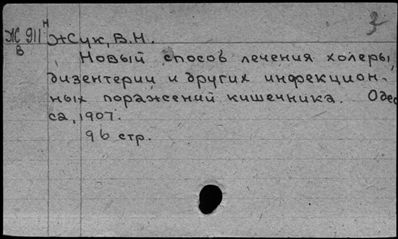 Ж 911 Н
В
Жук, В.Н.
Новый способ лечения холеры,
дизентерии и других инфекцион-
ных поражений кишечника. Одес
са, 1907.
96 стр.